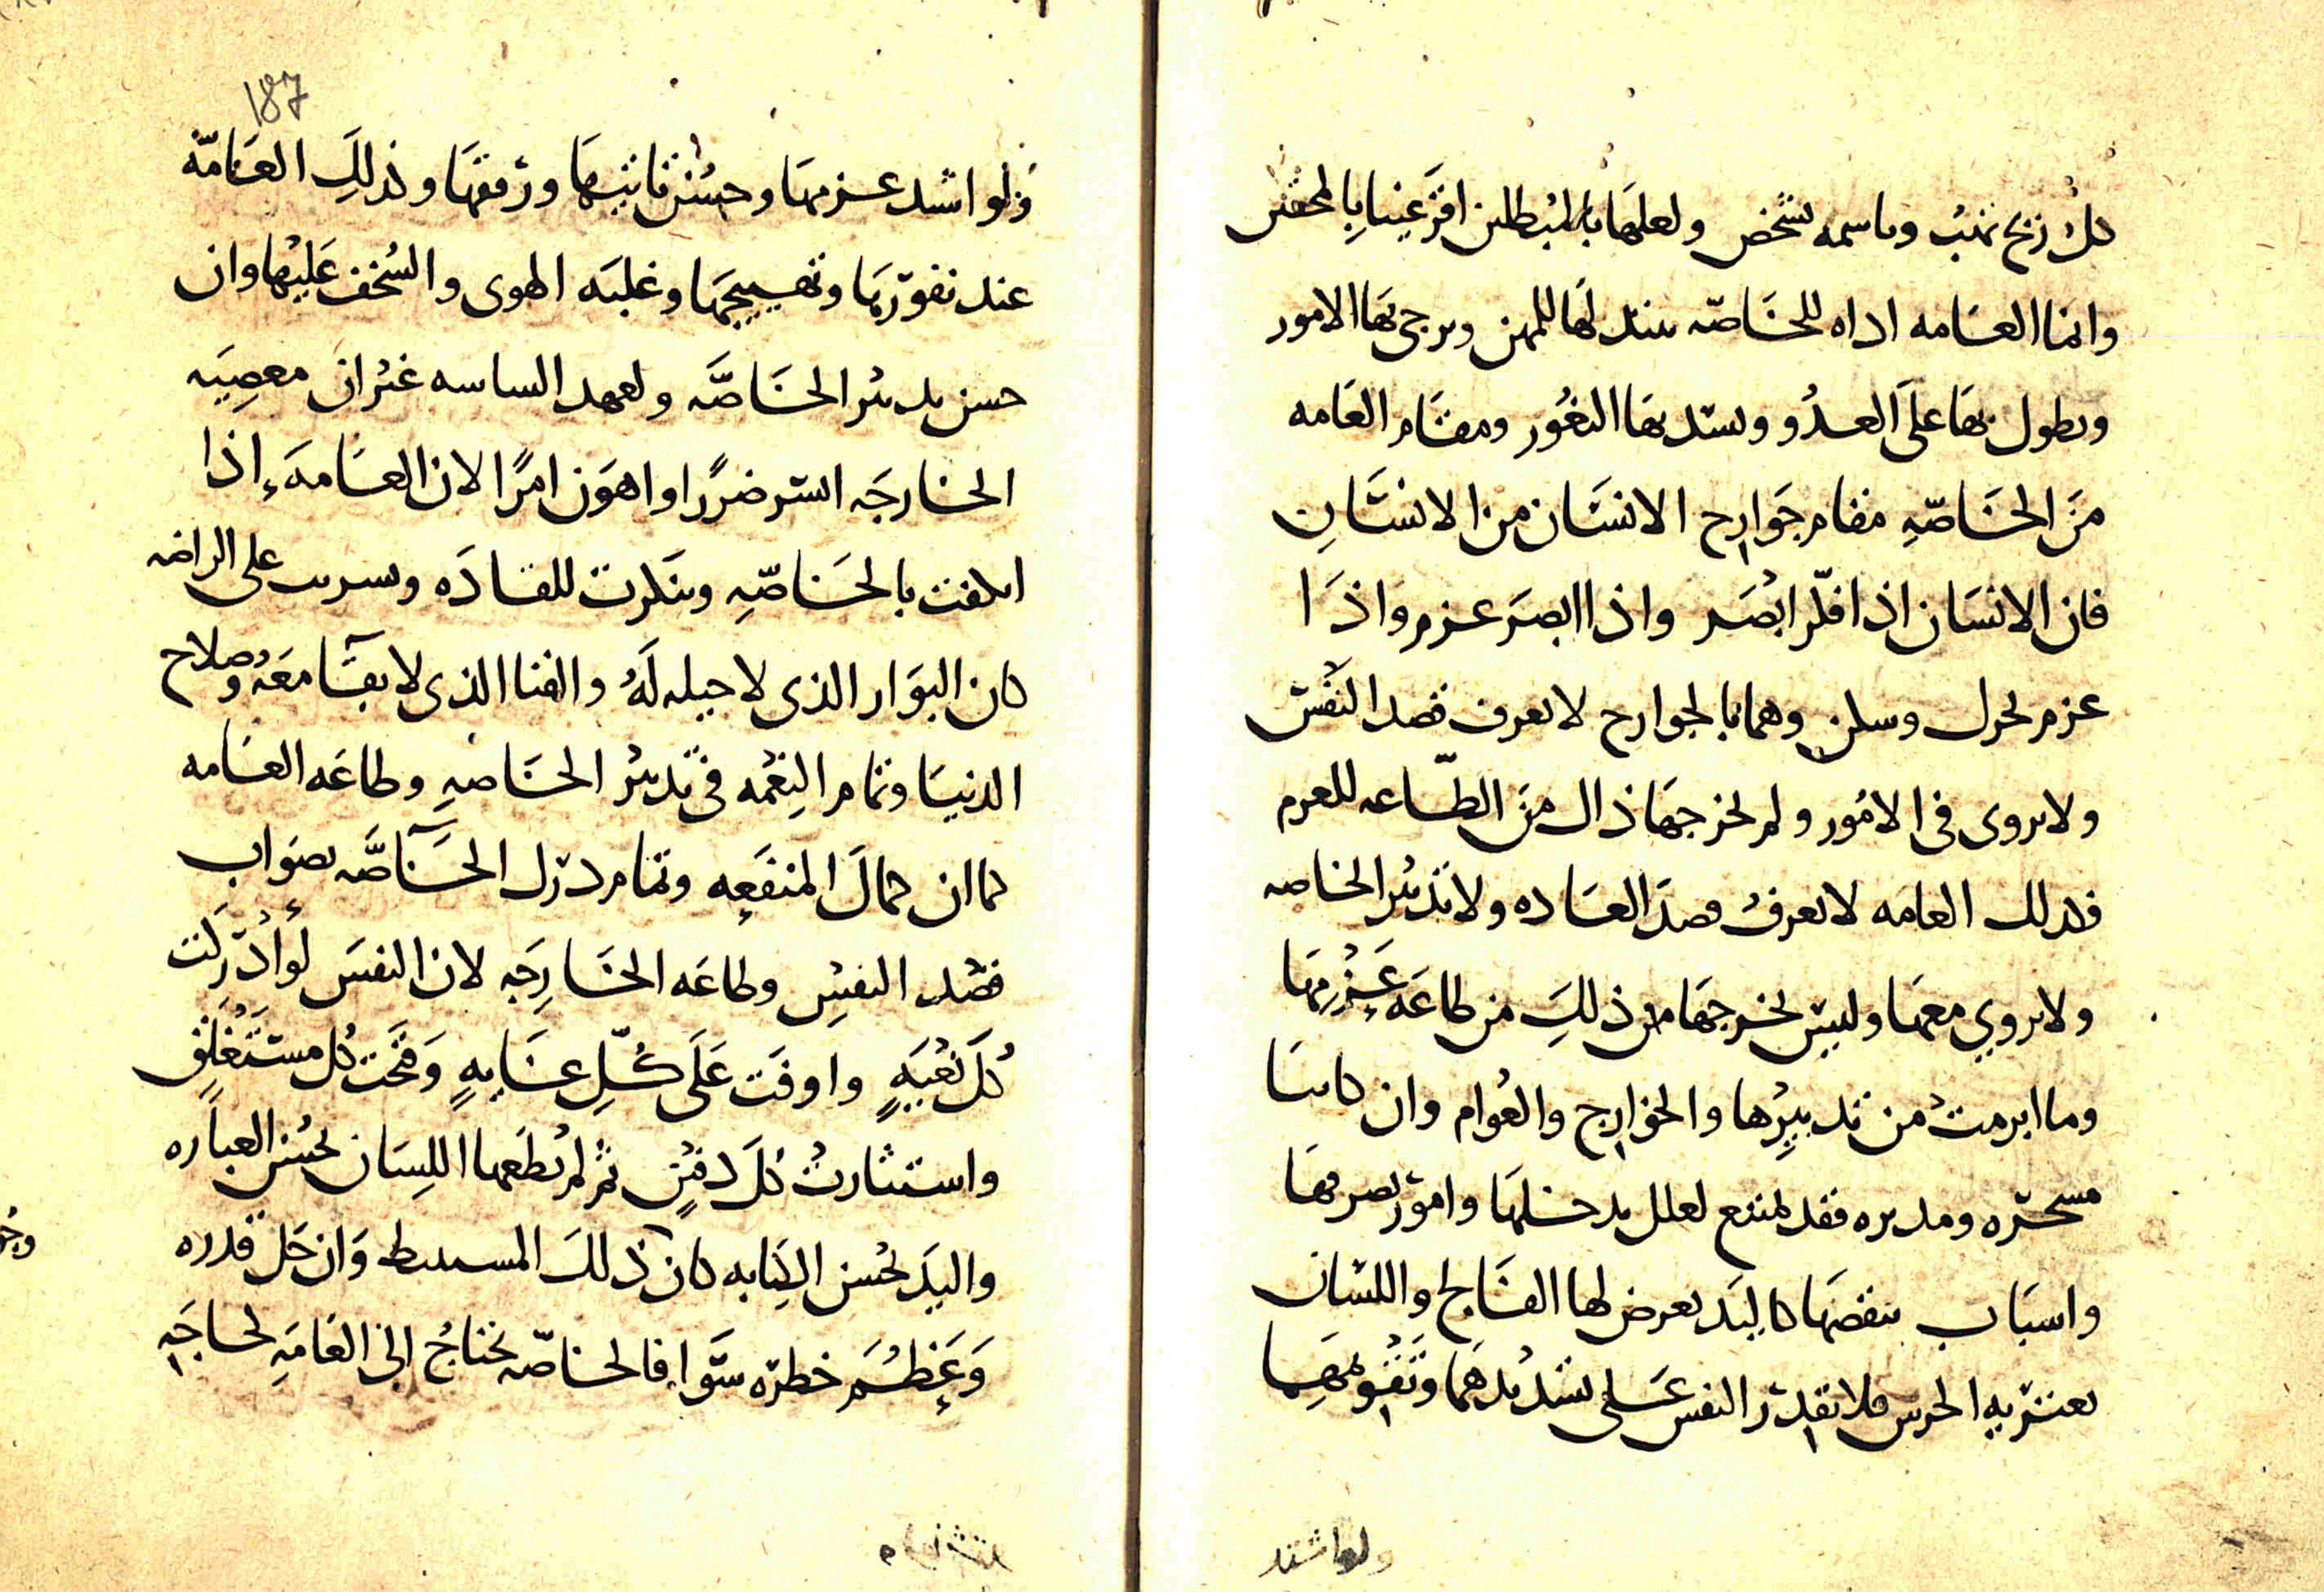 كل ريح تهب وباسمه شخص ولعلها بالمبطلين اقرعينا بالمحقين
وانما العامه اداه للخاصه تبتدلها للمهن وترجى بها الامور
وتطول بها على العدو وتسد بها الثغور ومقام العامه
من الخاصه مقام جوارح الانسان من الانسان
فان الانسان اذا فكر ابصر واذا ابصر عزم واذا
عزم تحرك وسكن وهما بالجوارح لا تعرف قصد النفس
ولا تروى فى الامور ولم يخرجها ذاك من الطاعه للعزم
فكذلك العامه لا تعرف قصد القاده ولا تدبير الخاصه
ولا تروي معها وليس يخرجها من ذلك من طاعه عزمها
وما ابرمت من تدبيرها والجوارح والعوام وان كانتا
مسخره ومدبره فقد تمتنع لعلل تدخلها وامور تصرفها
واسباب تنقضها كاليد يعرض لها الفالج واللسان
يعتريه الخرس فلا تقدر النفس على تسديدهما وتقويمهما
ولو اشتد
ولو اشتد عزمها وحسن تاتيها ورفقها وكذلك العامه
عند نفورها وتهييجها وغلبه الهوى والسخف عليها وان
حسن تدبير الخاصه وتعهد الساسه غير ان معصيه
الجارحه ايسر ضررا واهون امرا لان العامه اذا
انكفت بالخاصه وتنكرت للقاده وتشربت على الراضه
كان البوار الذى لا حيله له والفنا الذى لا بقا معه وصلاح
الدنيا وتمام النعمه فى تدبير الخاصه وطاعه العامه
كما ان كمال المنفعه وتمام درك الحاصه بصواب
قصد النفس وطاعه الجارحه لان النفس لو ادركت
كل بغيه واوفت على كل غايه وفتحت كل مستغلق
واستثارت كل دفين ثم لم يطعها اللسان بحسن العباره
واليد بحسن الكتابه كان ذلك المستنبط وان جل قدره
وعظم خطره سوا فالخاصه تحتاج الى العامه لحاجه
187